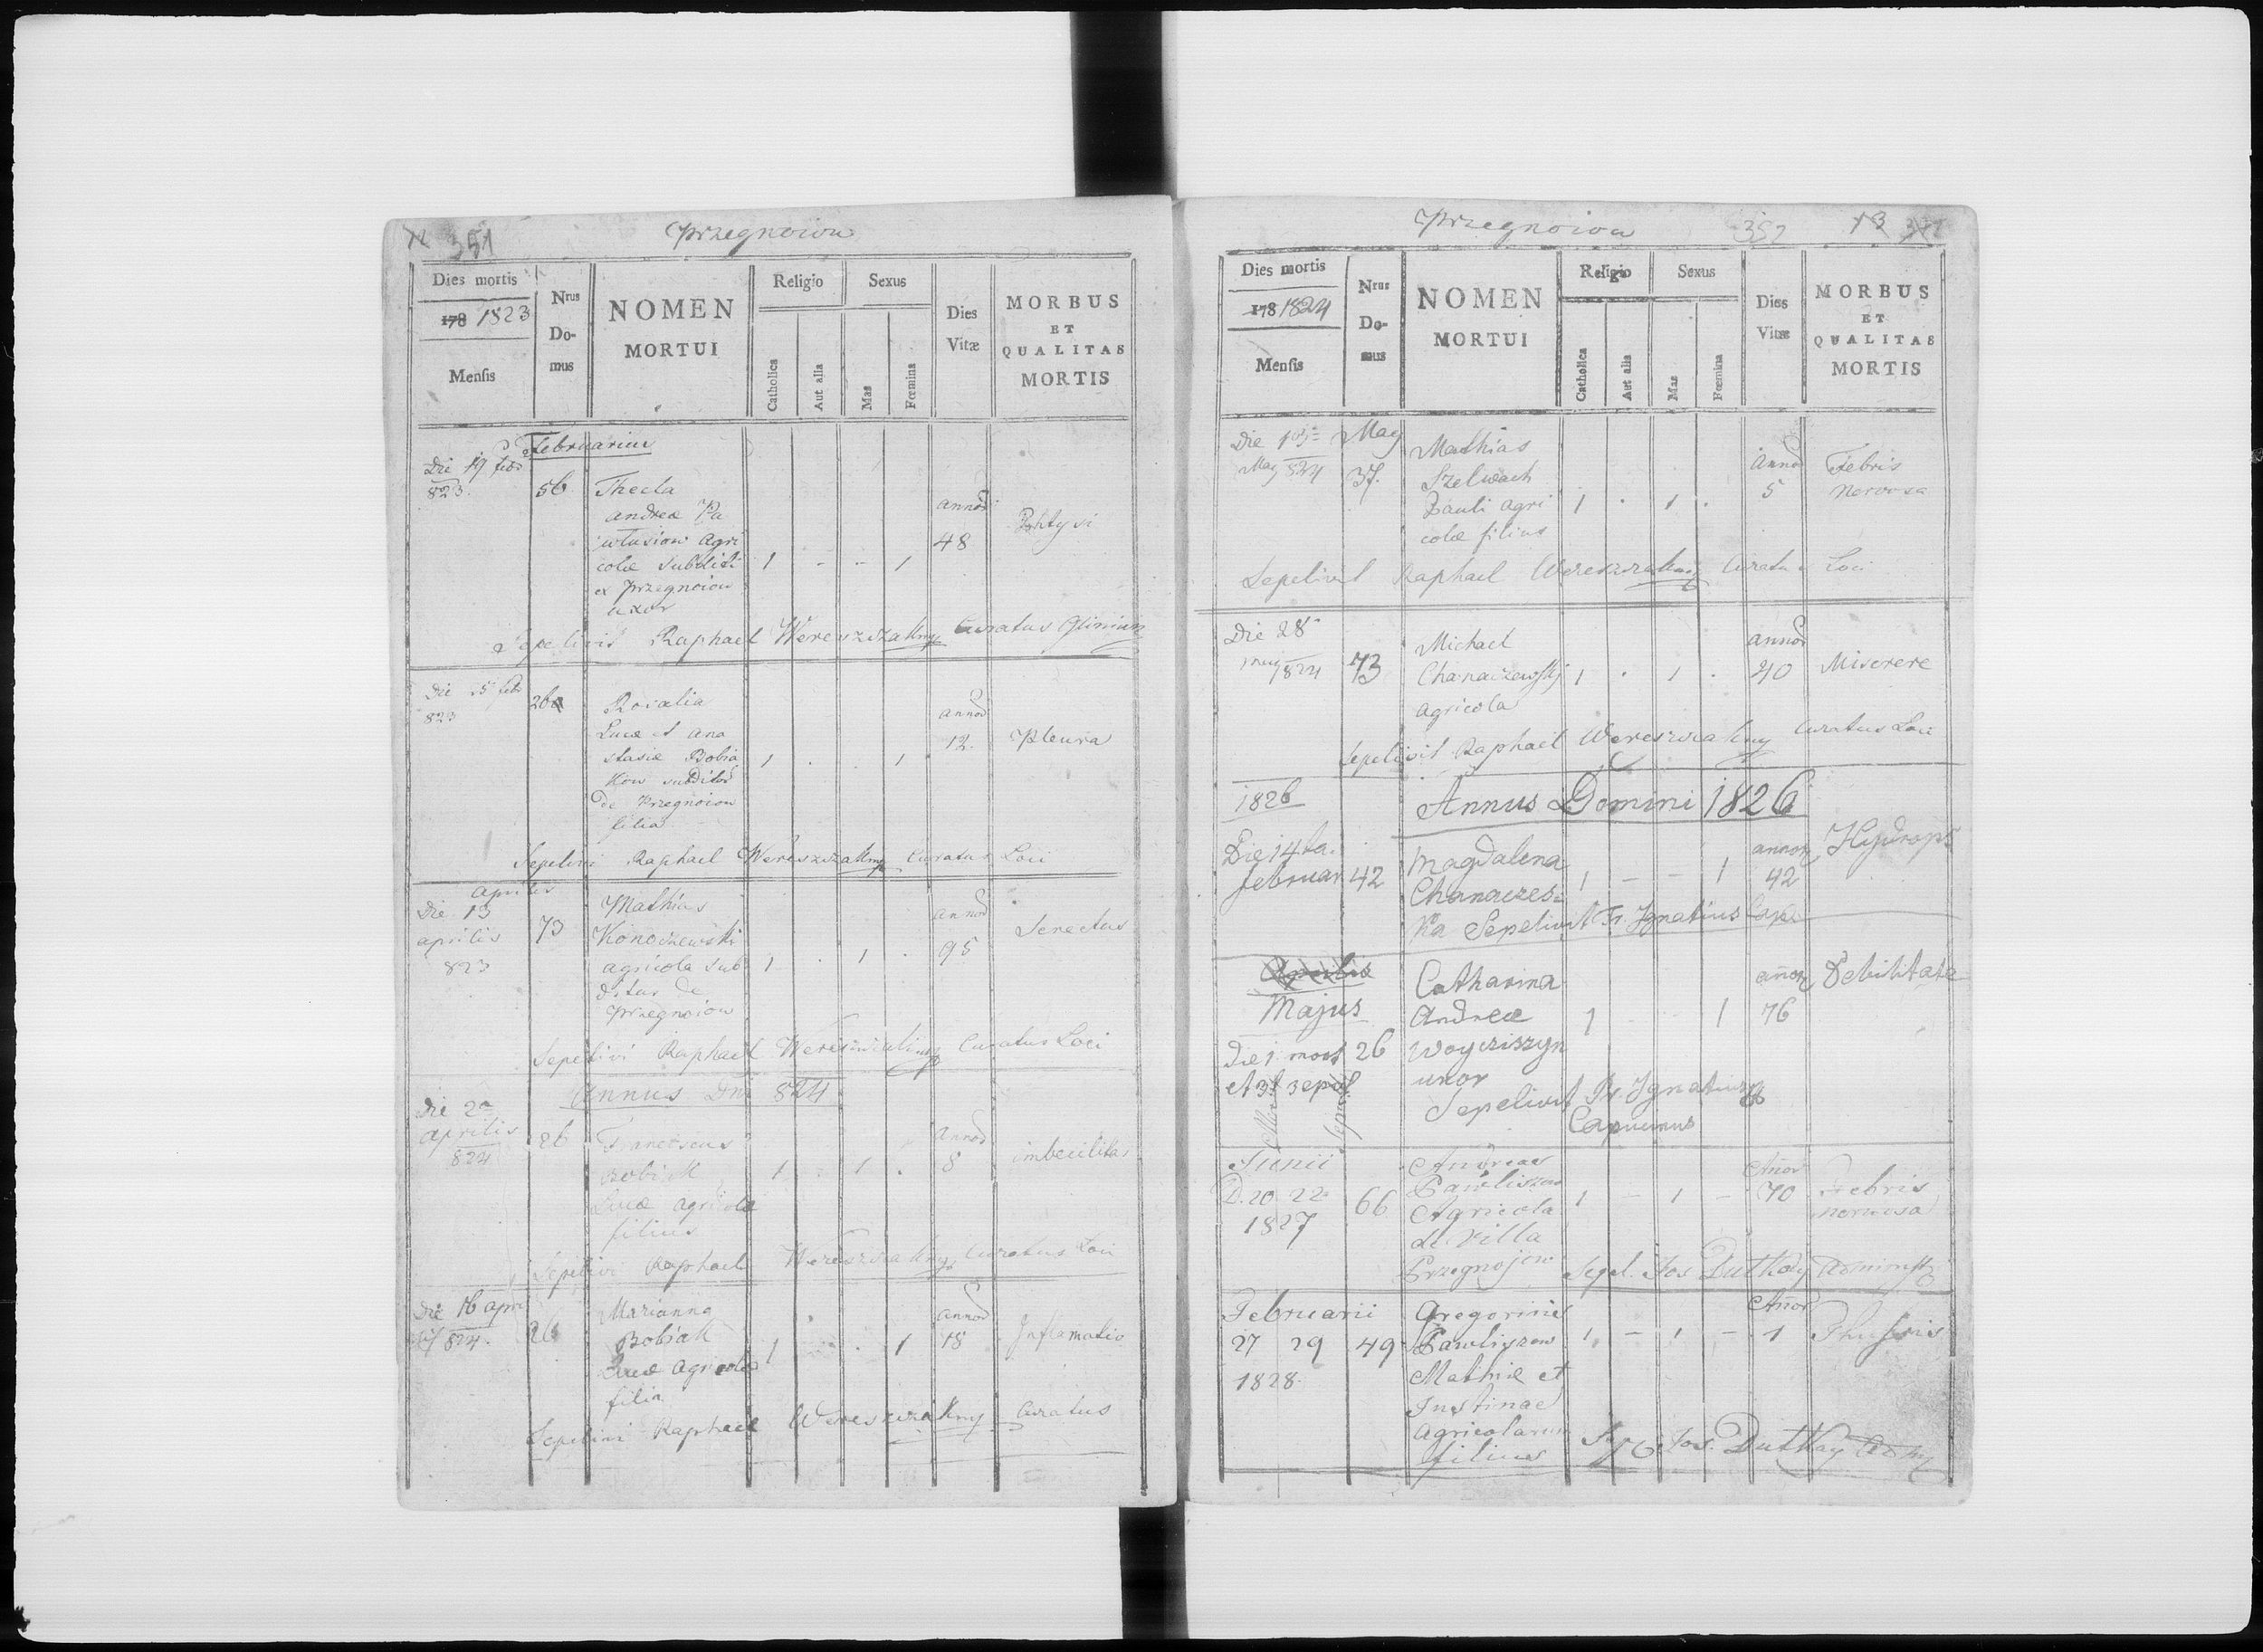 351
Przegnoiow
Dies mortis
178 1823
Mensis
Nrus
Do-
mus
NOMEN
MORTUI
Religio
Catholica
Aut alia
Sexus
Mas
Fœmina
Dies
Vitæ
MORBUS
ET
QUALITAS
MORTIS
Februarius
Die 19 feb
823.
56
Thecla
andreæ Pa
agri
colæ subditi
ex Przegnoiow
uxor
1 - - 1
annor
48
Phtysi
Sepelivit Raphael Wereszczakny Curatus Glinian
Die 25 febr
823
26
Rosalia
Lucæ et Ana
stasiæ Bobia
kow subditor
de Przegnoiow
filia
1 . . 1
annor
12.
Pleura
Sepelivi Raphael Wereszczakny Curatus Loci
aprilis
Die 13
aprilis
823
73
Mathias
Konoszewski
agricola sub
ditus de
Przegnoiow
1 . 1 .
annor
95
Senectus
Sepelivi Raphael Curatus Loci
Annus Dni 824
Die 2a
aprilis
824
26
Franciscus
Bobiak
Lucæ agricolæ
filius
1 . 1 .
annor
8
imbecilitas
Sepelivi Raphael Wereszczakny Curatus Loci
Die 16 apri
lis 824.
26
Marianna
Bobiak
Lucæ agricolæ
filia
1 . . 1
annor
18
Inflamatio
Sepelivi Raphael Wereszczakny Curatus
Przegnoiow
352
13
Dies mortis
178 1824
Mensis
Nrus
Do-
mus
NOMEN
MORTUI
Religio
Catholica
Aut alia
Sexus
Mas
Fœmina
Dies
Vitæ
MORBUS
ET
QUALITAS
MORTIS
May
May 824
37.
Mathias
Szelwach
Pauli agri
colæ filius
1 . 1 .
annor
5
Febris
nervosa
Sepelivit Raphael Wereszczakny Curatus Loci
Die 28
may 824
73
Michael
Chanaczewskj
agricola
1 . 1 .
annor
40
Miserere
Sepelivit Raphael Wereszczakny Curatus Loci
1826
Annus Domini 1826
Die 14ta.
februar
42
Magdalena
Chanaczes:
ka Sepelivit Fr. Ignatius Cap
1 - - 1
annor
42
Hydrops
Aprilis
Majus
Die 1 mort
et 3t sepul
26
Catharina
Andreæ
Woyciszyn
uxor
1 . . 1
anor
76
Debilitate
Sepelivit Pr. Ignatius
Capucinus
Junii
D. 20 22
1827
66
Andreas
Pawliszen
Agricola
de Villa
Przegnojow
1 - 1 -
Añor
70
Febris
nervosa
Sepel. Jos Dutkay Adminstr
Februarii
27 29
1828.
49
Gregorius
Pawliszen
Mathiæ et
Justinae
Agricolarum
filius
1 - 1 -
Añor
1
Jos. Dutkay Adm